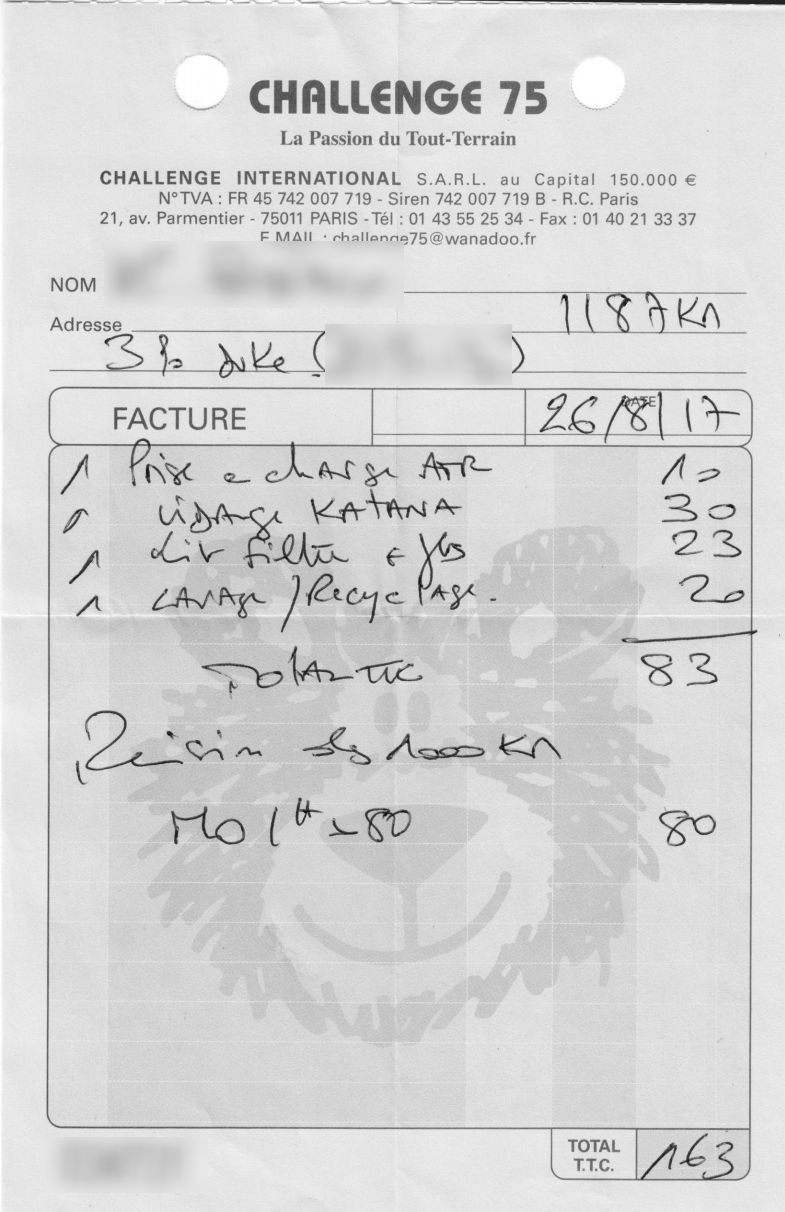 CHALLENGE 75
La Passion du Tout-Terrain
CHALLENGE INTERNATIONAL S.A.R.L. au Capital 150.000 €
N°TVA : FR 45 742 007 719 - Siren 742 007 719 B - R.C. Paris
21, av. Parmentier - 75011 PARIS - Tél : 01 43 55 25 34 - Fax : 01 40 21 33 37
E.MAIL : challenge75@wanadoo.fr
NOM
1187 KM
Adresse
DUKE (
)
FACTURE DATE 26/8/17
1 Prise charge ATR 10
VIDANGE KATANA 30
1 filtre 23
1 LAVAGE / Recyclage. 20
TOTAL TTC 83
1000 KM
MO 1H 80 80
TOTAL T.T.C. 163